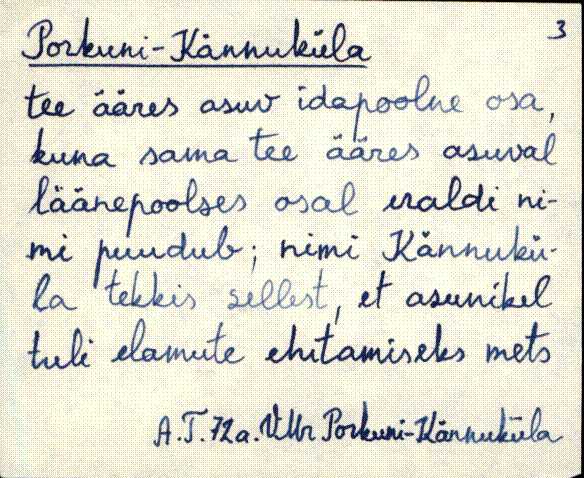 3
Porkuni-Kännuküla
tee ääres asuv idapoolne osa,
kuna sama tee ääres asuval
läänepoolses osal eraldi ni-
mi puudub; nimi Kännukü-
la tekkis sellest, et asunikel
tuli elamute ehitamiseks mets
A.T.72a. VMr Porkuni-Kännuküla